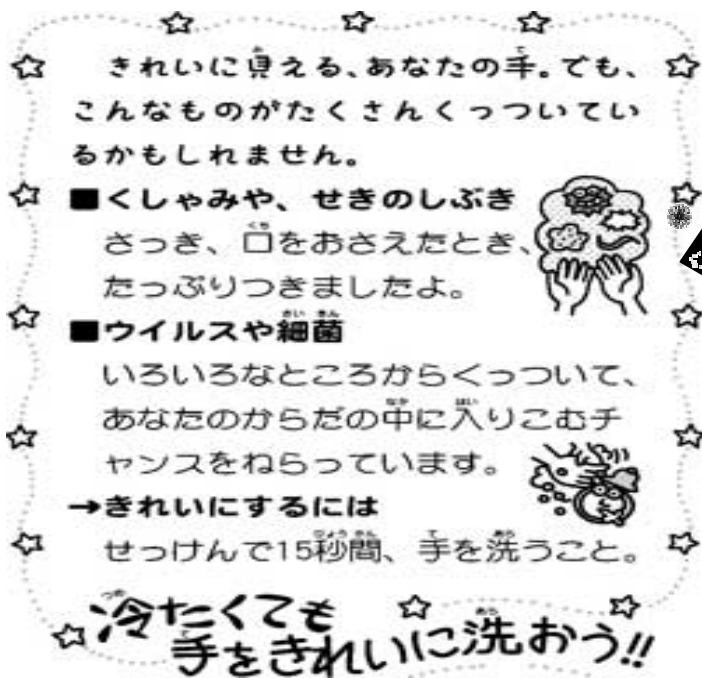 きれいに見える、あなたの手。でも、
こんなものがたくさんくっついてい
るかもしれません。
■くしゃみや、せきのしぶき
さっき、口をおさえたとき、
たっぷりつきましたよ。
■ウイルスや細菌
いろいろなところからくっついて、
あなたのからだの中に入りこむチ
ャンスをねらっています。
→きれいにするには
せっけんで15秒間、手を洗うこと。
冷たくても
手をきれいに洗おう!!